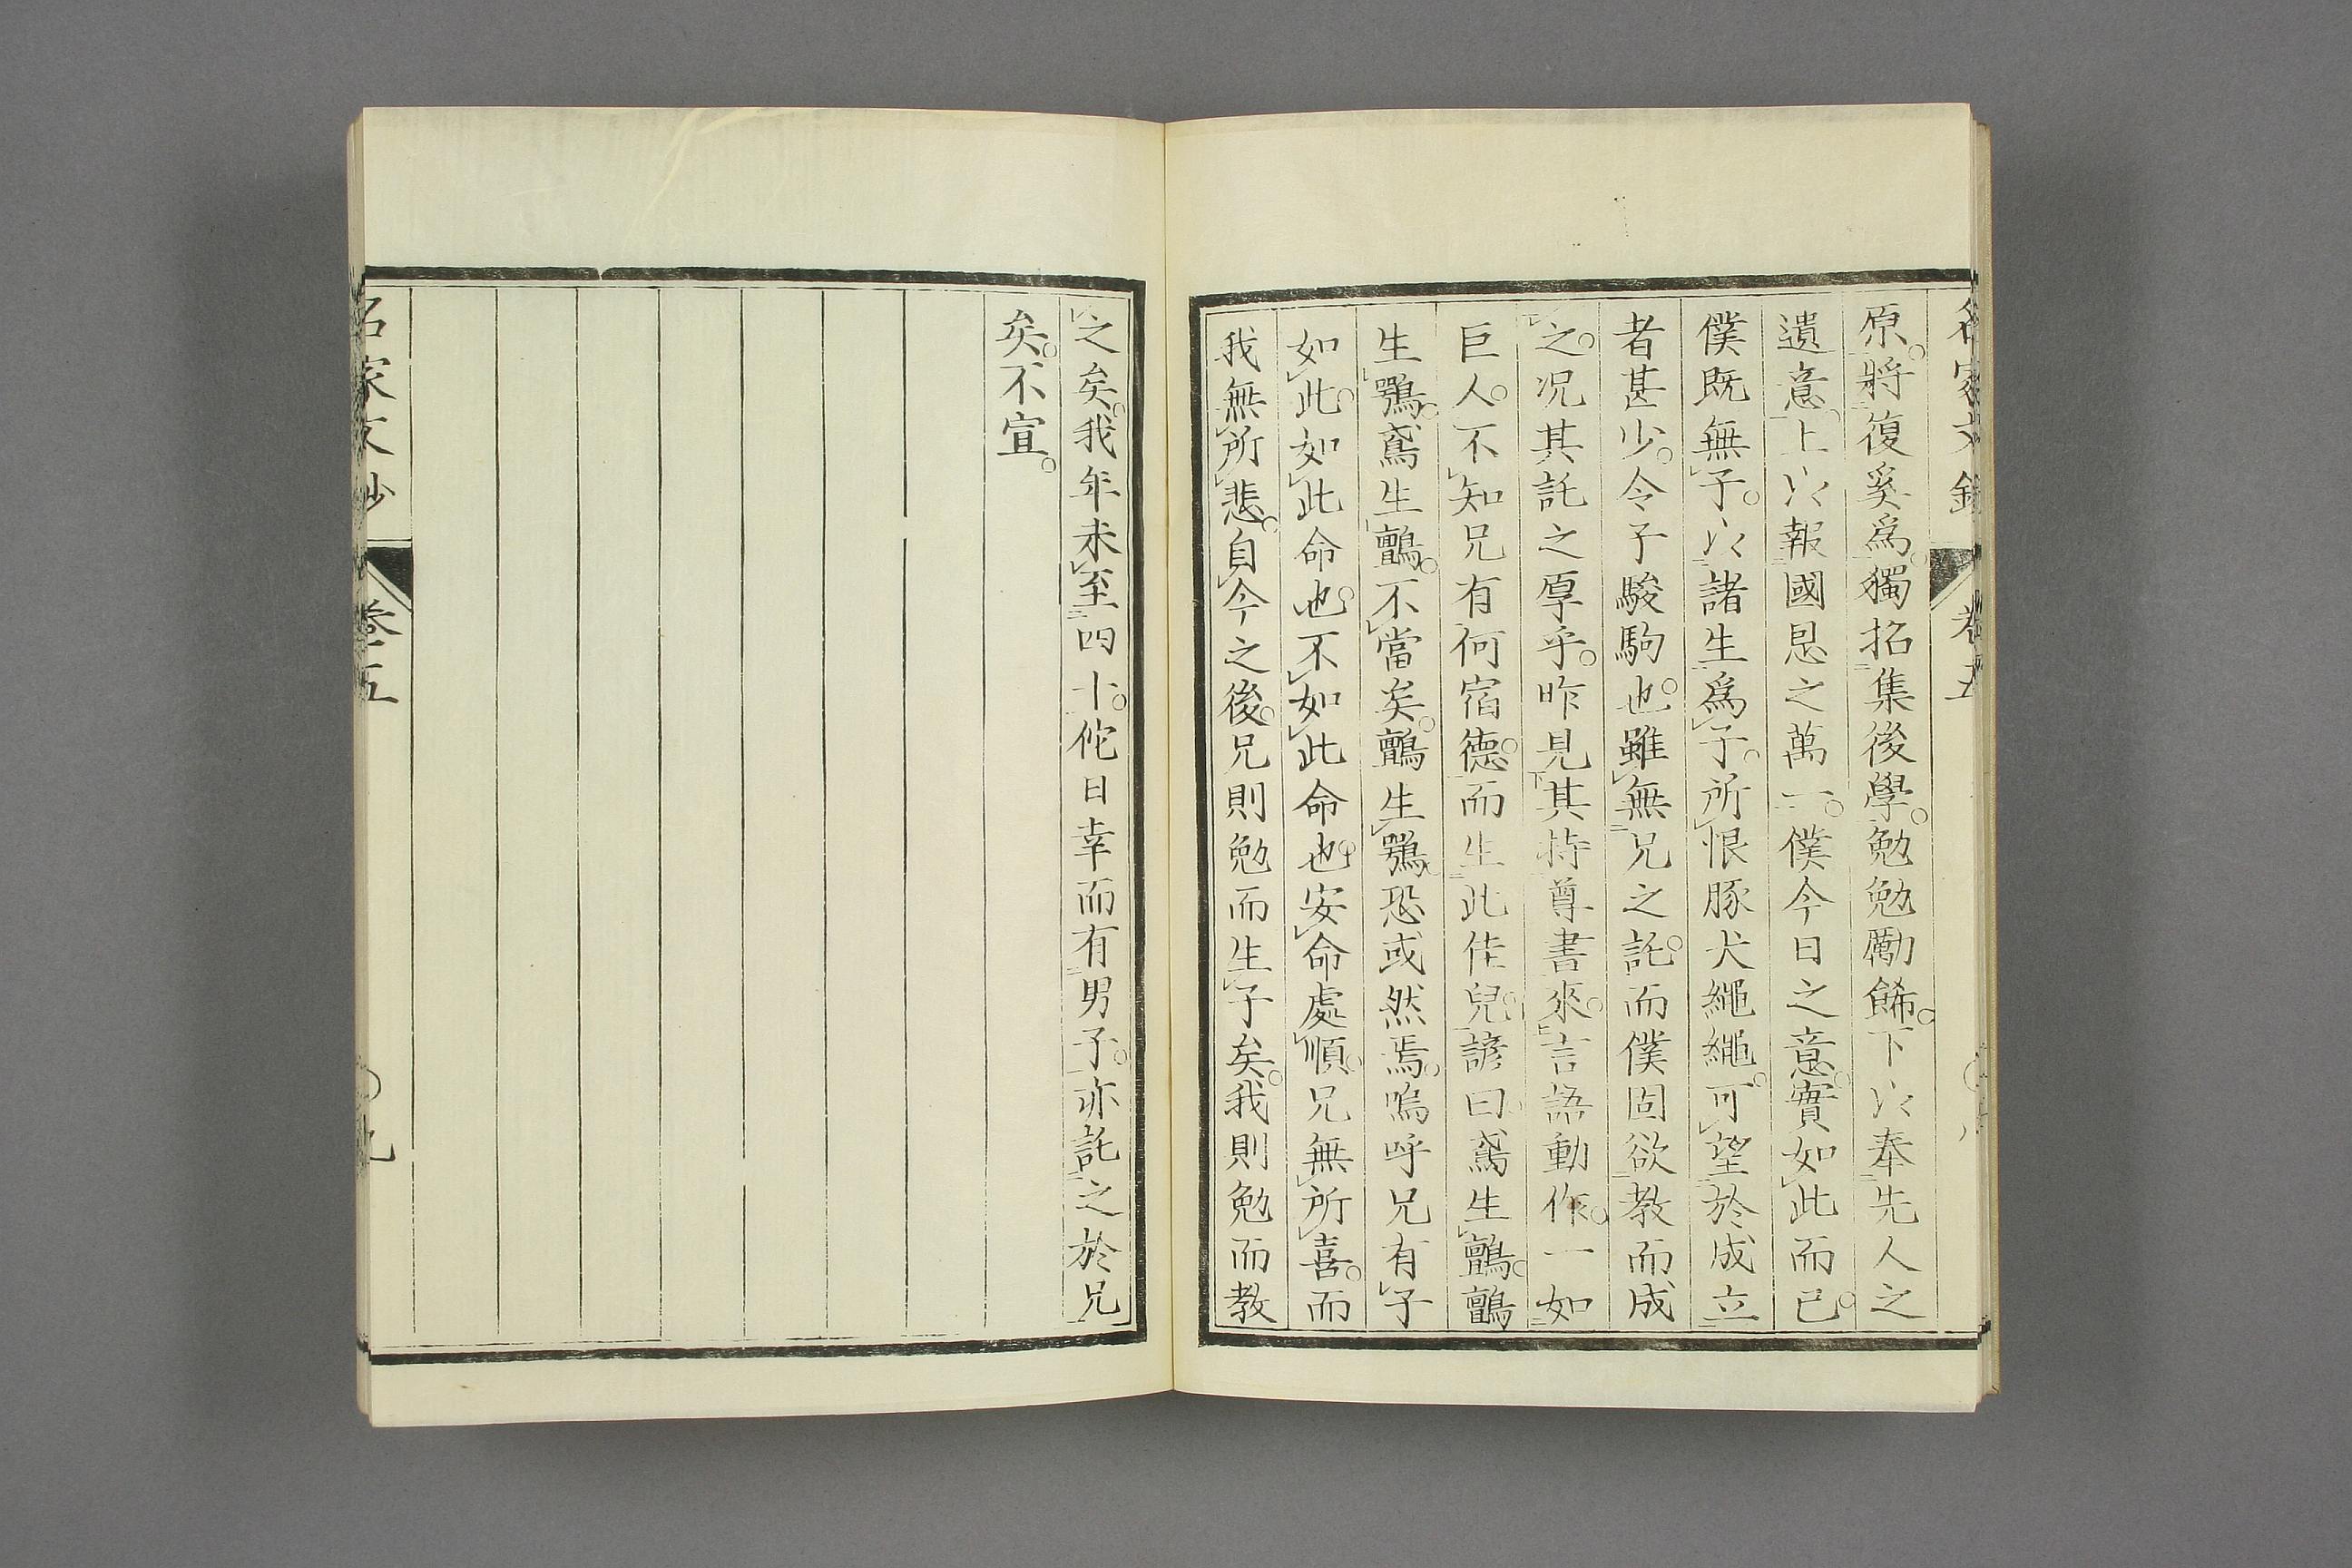 名家文鈔 卷五
原。將復奚爲。獨招集後學。勉勉勵餙。下以奉先人之
遺意。上以報國恩之萬一。僕今日之意。實如此而已。
僕既無子。以諸生爲子。所恨豚犬繩繩。可望於成立
者甚少。令子駿駒也。雖無兄之託。而僕固欲教而成
之。况其託之厚乎。昨見其持尊書來。言語動作。一如
巨人。不知兄有何宿德。而生此佳兒。諺曰。鳶生鸇。鸇
生鶚。鳶生鸇。不當矣。鸇生鶚。恐或然焉。嗚呼兄有子
如此。如此命也。不如此命也。安命處順。兄無所喜。而
我無所悲。自今之後。兄則勉而生子矣。我則勉而教
之矣。我年未至四十。佗日幸而有男子。亦託之於兄
矣。不宣。
名家文鈔 卷五 九